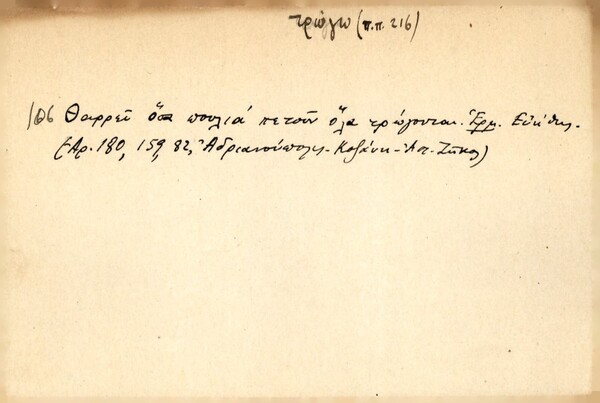 τρώγω (π.π. 216)
106 Θαρρεῖ ὅσα πουλιά πετοῦν ὅλα τρώγονται. Ἑρμ. Εὐήθης.
(Ἀρ. 180, 159, 82, Ἀδριανούπολις - Κοζάνη - Ἀστ. Ζῆκος)